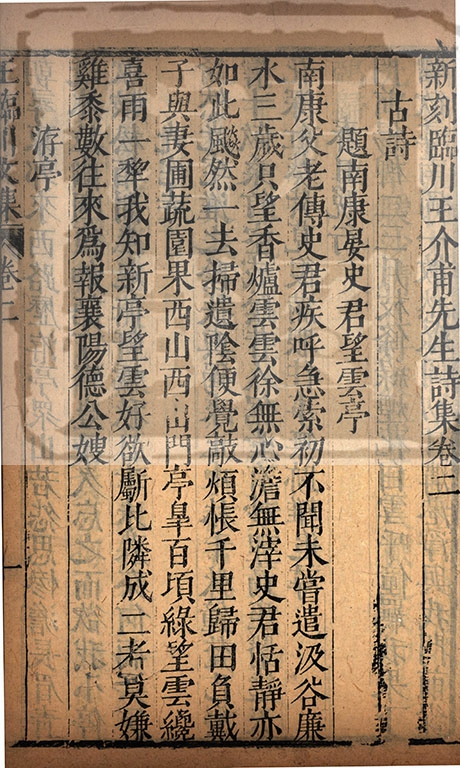 新刻臨川王介甫先生詩集卷二
古詩
題南康晏史君望雲亭
南康父老傳史君疾呼急索初不聞未嘗遣汲谷廉
水三歲只望香爐雲雲徐無心澹無滓史君恬靜亦
如此飈然一去掃遺陰便覺歊煩悵千里歸田負戴
子與妻圃蔬園果西山西出門亭皐百頃綠望雲纔
喜雨一犂我知新亭望雲好欲斸比隣成二老莫嫌
雞黍數往來為報襄陽德公嫂
游亭
王臨川文集 卷二
一